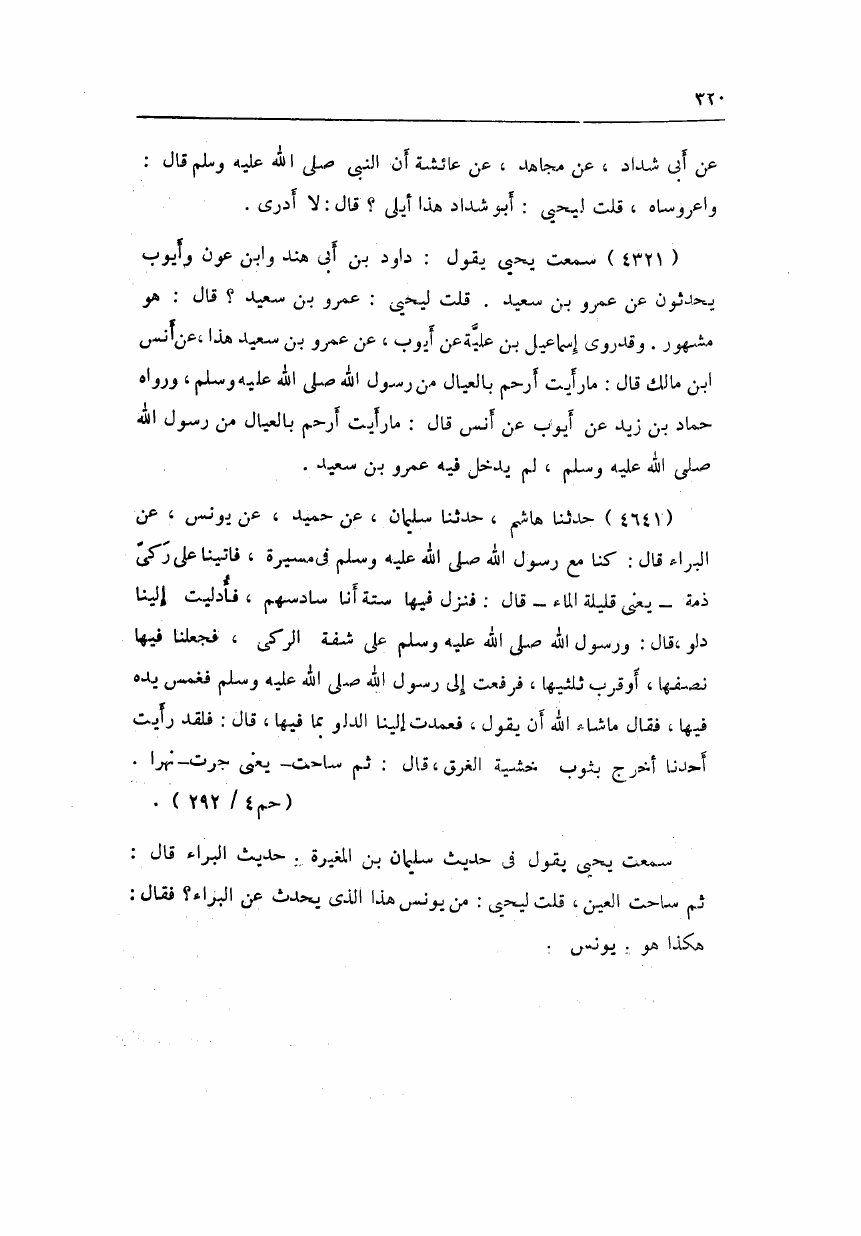 ٣٢٠
عن أبى شداد ، عن مجاهد ، عن عائشة أن النبى صلى الله عليه وسلم قال :
واعروساه ، قلت ليحيى : أبو شداد هذا أيلى ؟ قال : لا أدرى .
( ٤٣٢١ ) سمعت يحيى يقول : داود بن أبى هند وابن عون وأيوب
يحدثون عن عمرو بن سعيد . قلت ليحيى : عمرو بن سعيد ؟ قال : هو
مشهور . وقدروى إسماعيل بن عليَّة عن أيوب ، عن عمرو بن سعيد هذا ، عن أنس
ابن مالك قال : مارأيت أرحم بالعيال من رسول الله صلى الله عليه وسلم ، ورواه
حماد بن زيد عن أيوب عن أنس قال : مارأيت أرحم بالعيال من رسول الله
صلى الله عليه وسلم ، لم يدخل فيه عمرو بن سعيد .
( ٤٦٤١ ) حدثنا هاشم ، حدثنا سليمان ، عن حميد ، عن يونس ، عن
البراء قال : كنا مع رسول الله صلى الله عليه وسلم فى مسيرة ، فاتينا على رَكىّ
ذمة – يعنى قليلة الماء – قال : فنزل فيها ستة أنا سادسهم ، فأُدليت إلينا
دلو ، قال : ورسول الله صلى الله عليه وسلم على شفة الركى ، فجعلنا فيها
نصفها ، أوقرب ثلثيها ، فرفعت إلى رسول الله صلى الله عليه وسلم فغمس يده
فيها ، فقال ماشاء الله أن يقول ، فعمدت إلينا الدلو بما فيها ، قال : فلقد رأيت
أحدنا أخرج بثوب خشية الغرق ، قال : ثم ساحت – يعنى جرت – نهرا .
( حم ٤ / ٢٩٢ ) .
سمعت يحيى يقول فى حديث سليمان بن المغيرة . حديث البراء قال :
ثم ساحت العين ، قلت ليحيى : من يونس هذا الذى يحدث عن البراء ؟ فقال :
هكذا هو . يونس .